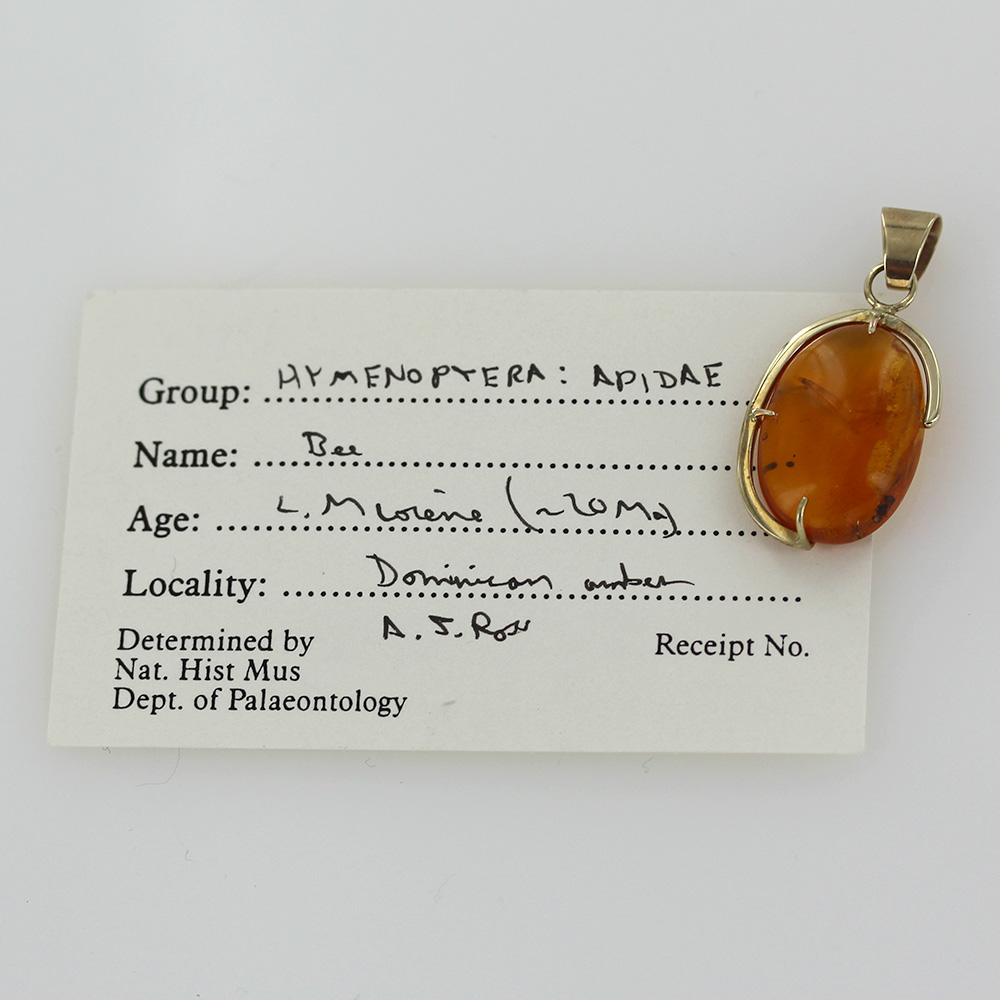 Group: HYMENOPTERA: APIDAE
Name: Bee
Age: L. Miocene (~20Ma)
Locality: Dominican amber
Determined by A. J. Ross Receipt No.
Nat. Hist Mus
Dept. of Palaeontology